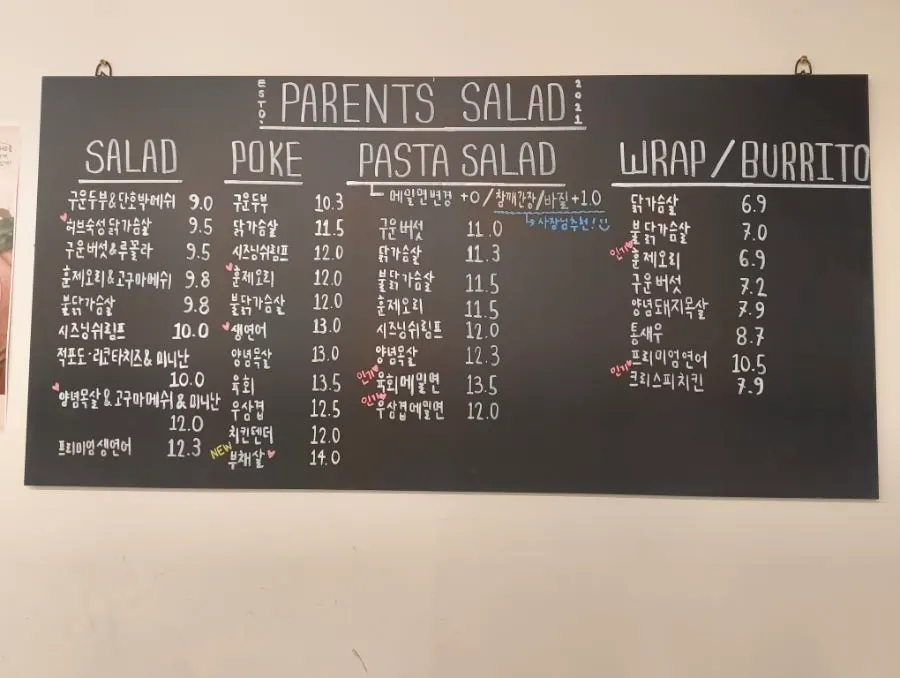 ESTD. PARENTS' SALAD 2021
SALAD
구운두부&단호박메쉬 9.0
허브숙성 닭가슴살 9.5
구운버섯&루꼴라 9.5
훈제오리&고구마메쉬 9.8
불닭가슴살 9.8
시즈닝쉬림프 10.0
적포도·리코타치즈& 미니난
10.0
양념목살&고구마메쉬&미니난
12.0
프리미엄생연어 12.3
POKE
구운두부 10.3
닭가슴살 11.5
시즈닝쉬림프 12.0
훈제오리 12.0
불닭가슴살 12.0
생연어 13.0
양념목살 13.0
육회 13.5
우삼겹 12.5
치킨텐더 12.0
NEW 부채살 14.0
PASTA SALAD
메밀면변경 +0 / 참깨간장/바질+1.0
사장님추천!
구운버섯 11.0
닭가슴살 11.3
불닭가슴살 11.5
훈제오리 11.5
시즈닝쉬림프 12.0
양념목살 12.3
인기 육회메밀면 13.5
인기 우삼겹메밀면 12.0
WRAP/BURRITO
닭가슴살 6.9
불닭가슴살 7.0
인기 훈제오리 6.9
구운버섯 7.2
양념돼지목살 7.9
통새우 8.7
프리미엄연어 10.5
인기 크리스피치킨 7.9